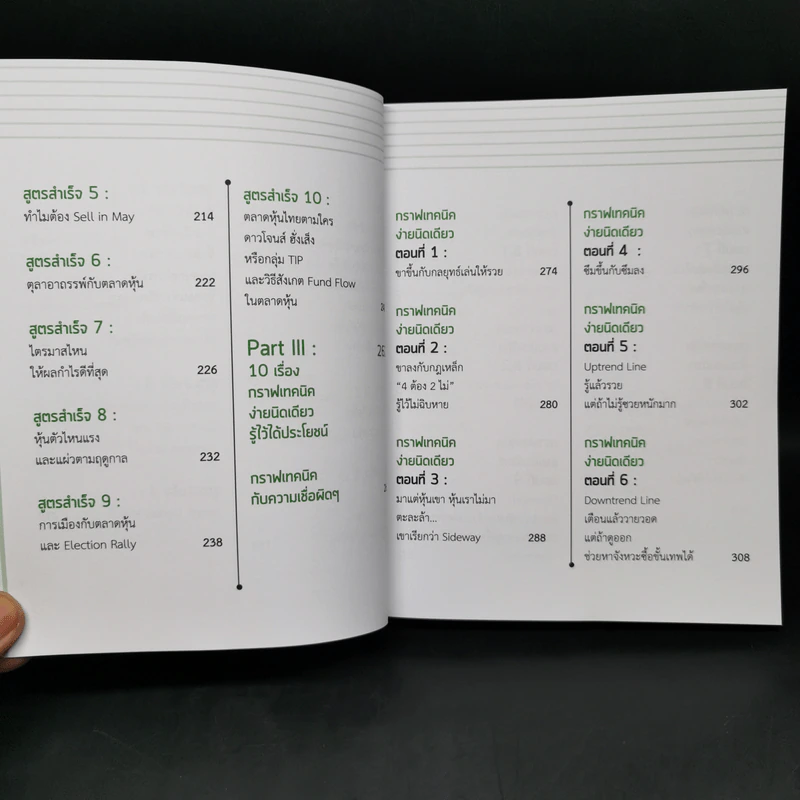 สูตรสำเร็จ 5 :
ทำไมต้อง Sell in May 214
สูตรสำเร็จ 6 :
ตุลาอาถรรพ์กับตลาดหุ้น 222
สูตรสำเร็จ 7 :
ไตรมาสไหน
ให้ผลกำไรดีที่สุด 226
สูตรสำเร็จ 8 :
หุ้นตัวไหนแรง
และแผ่วตามฤดูกาล 232
สูตรสำเร็จ 9 :
การเมืองกับตลาดหุ้น
และ Election Rally 238
สูตรสำเร็จ 10 :
ตลาดหุ้นไทยตามใคร
ดาวโจนส์ ฮั่งเส็ง
หรือกลุ่ม TIP
และวิธีสังเกต Fund Flow
ในตลาดหุ้น
Part III :
10 เรื่อง
กราฟเทคนิค
ง่ายนิดเดียว
รู้ไว้ได้ประโยชน์
กราฟเทคนิค
กับความเชื่อผิดๆ
กราฟเทคนิค
ง่ายนิดเดียว
ตอนที่ 1 :
ขาขึ้นกับกลยุทธ์เล่นให้รวย 274
กราฟเทคนิค
ง่ายนิดเดียว
ตอนที่ 2 :
ขาลงกับกฎเหล็ก
"4 ต้อง 2 ไม่"
รู้ไว้ไม่ฉิบหาย 280
กราฟเทคนิค
ง่ายนิดเดียว
ตอนที่ 3 :
มาแต่หุ้นเขา หุ้นเราไม่มา
ตะละล้า...
เขาเรียกว่า Sideway 288
กราฟเทคนิค
ง่ายนิดเดียว
ตอนที่ 4 :
ซึมขึ้นกับซึมลง 296
กราฟเทคนิค
ง่ายนิดเดียว
ตอนที่ 5 :
Uptrend Line
รู้แล้วรวย
แต่ถ้าไม่รู้ซวยหนักมาก 302
กราฟเทคนิค
ง่ายนิดเดียว
ตอนที่ 6 :
Downtrend Line
เตือนแล้ววายวอด
แต่ถ้าดูออก
ช่วยหาจังหวะซื้อขั้นเทพได้ 308